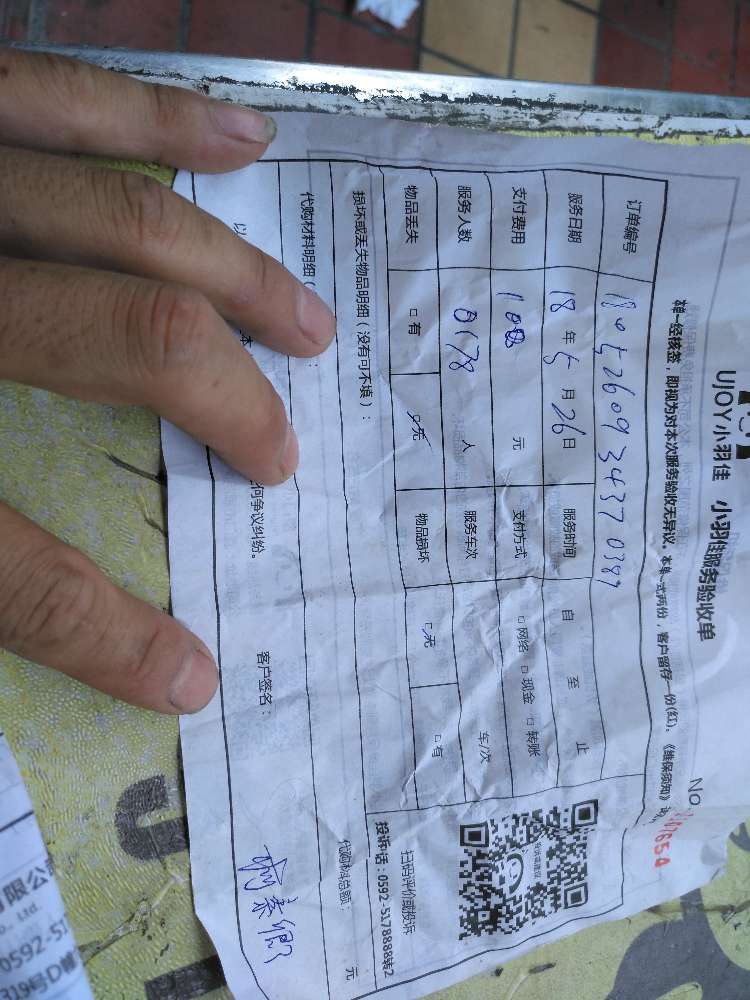 UJOY小羽佳 小羽佳服务验收单
NO
本单一经核签,即视为对本次服务验收无异议。本单一式两份,客户留存一份(红)。《维保须知》
订单编号 180526093437 0387
服务日期 18 年 5 月 26 日 服务时间 自 至 止
支付费用 100 元 支付方式 □网络 □现金 □转账
服务人数 0178 人 服务车次 车/次
物品丢失 □有 □无 物品损坏 □无 □有
损坏或丢失物品明细(没有可不填):
扫码评价或投诉
投诉电话:0592-5178888转2
代购材料明细( : 代购材料总额: 元
以 本 何争议纠纷。 客户签名:
有限公
., Ltd
0592-51
319号D幢